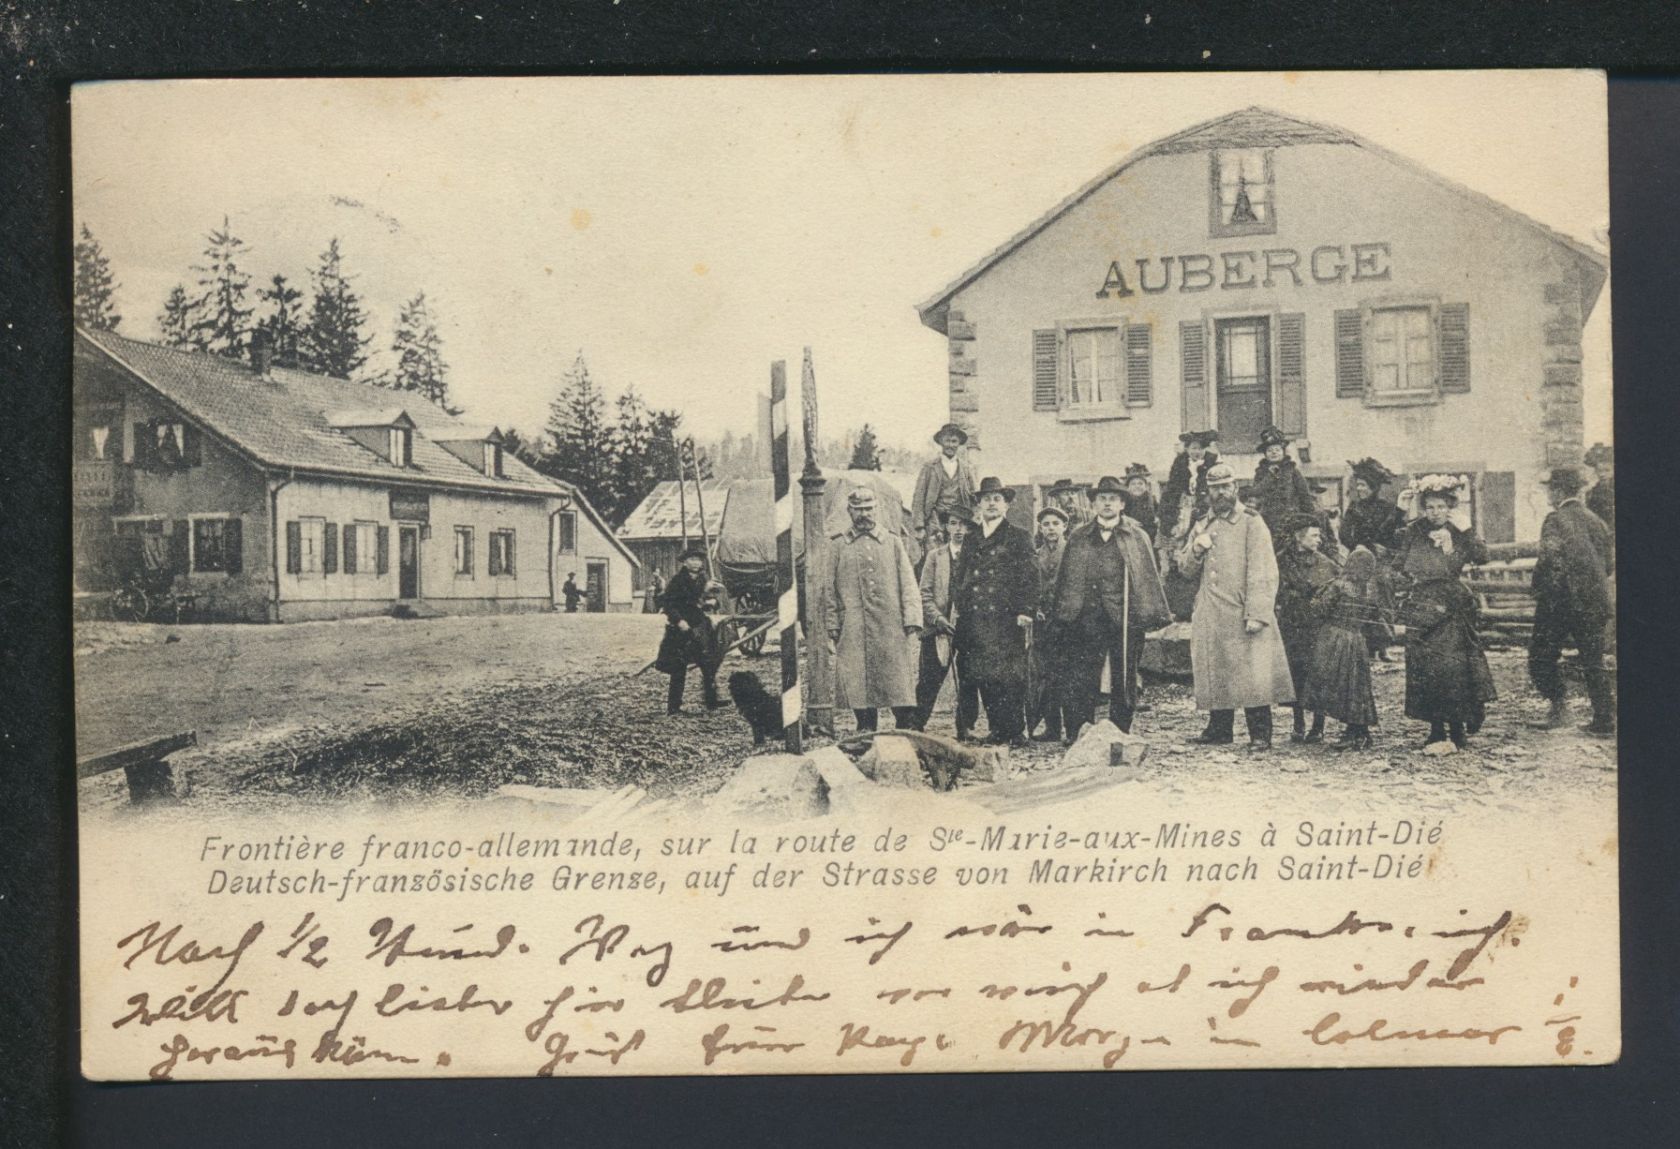 AUBERGE
Frontière franco-allemande, sur la route de Ste-Marie-aux-Mines à Saint-Dié
Deutsch-französische Grenze, auf der Strasse von Markirch nach Saint-Dié
Nach 1/2 Stund. Weg und ich wär in Frankreich.
Will doch lieber hier bleiben wer weiss ob ich wieder
heraus käme. Gruss Morgen in Colmar